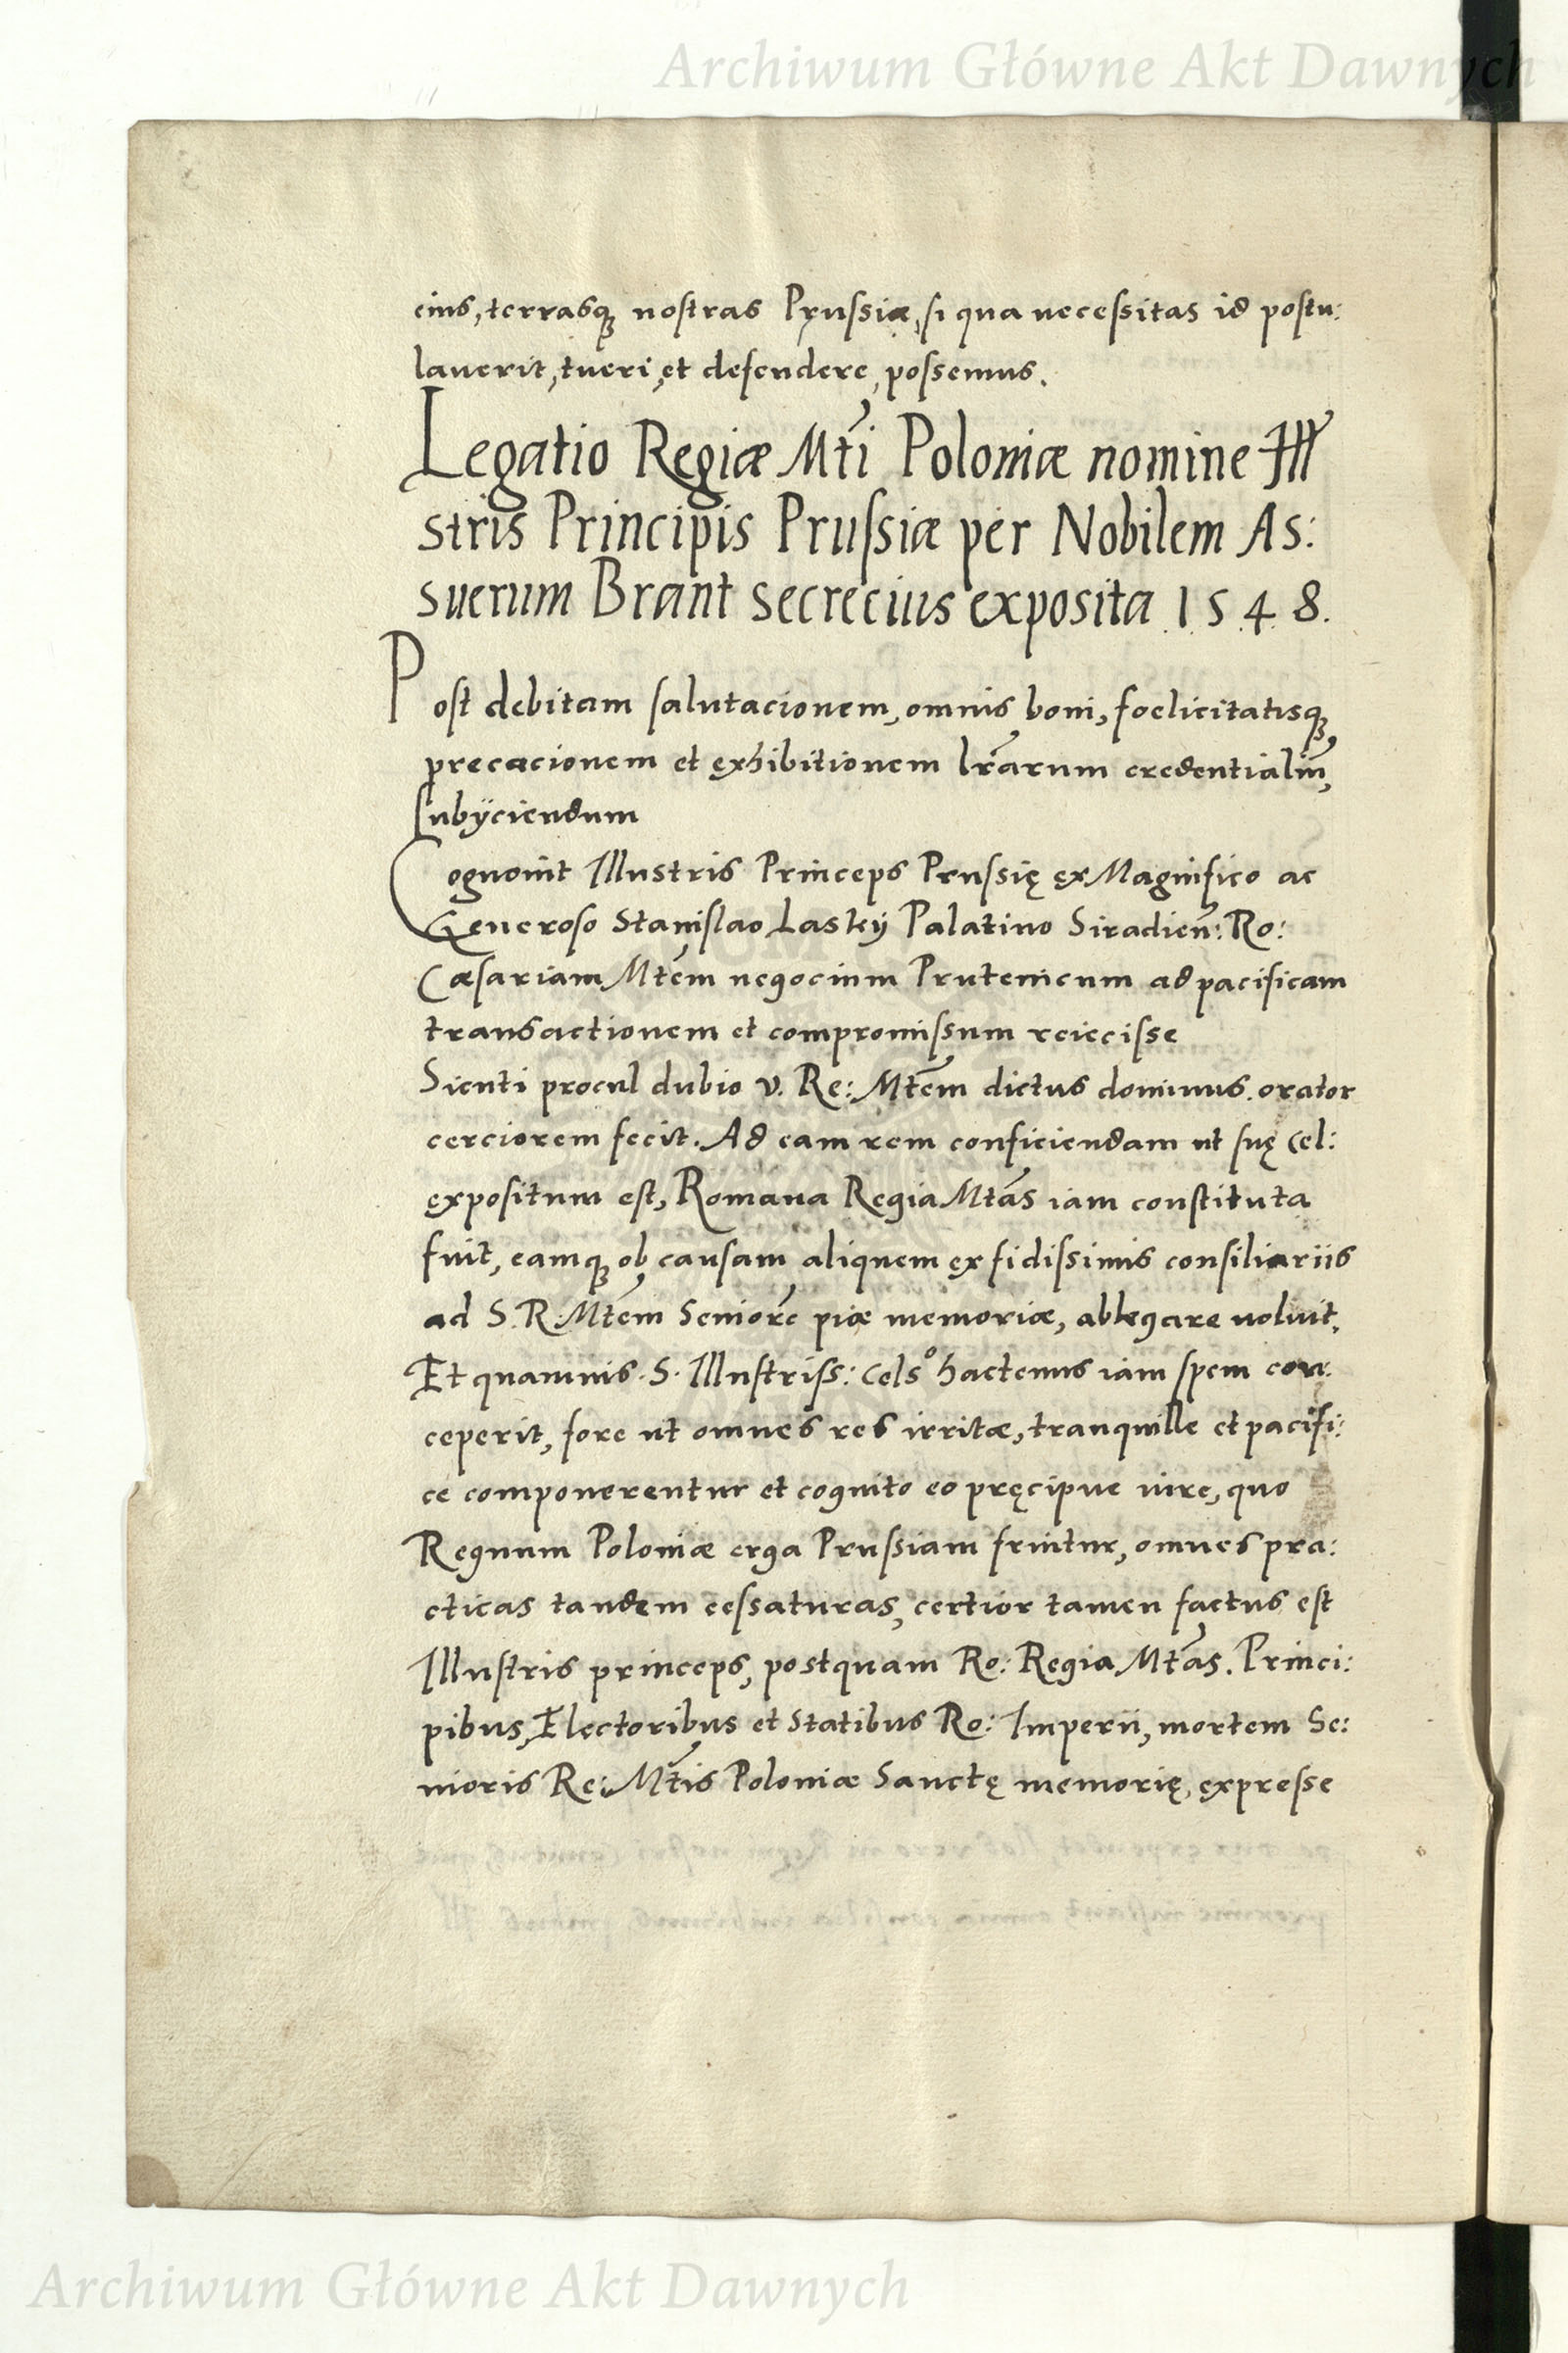 Archiwum Główne Akt Dawnych
eius, terrasq; nostras Prussiæ, si qua necessitas id postu:
lauerit, tueri, et defendere, possemus.
Legatio Regiæ Mti Poloniæ nomine Illu
stris Principis Prussiæ per Nobilem As:
suerum Brant secrecius exposita 1548.
Post debitam salutacionem, omnis boni, foelicitatisq;
precacionem et exhibitionem lrarum credentialiu,
subÿciendum
Cognouit Illustris Princeps Prussię ex Magnifico ac
Generoso Stanislao Laskÿ Palatino Siradien: Ro:
Cæsariam Mtem negocium Prutenicum ad pacificam
transactionem et compromissum reiecisse
Sicuti procul dubio v. Re: Mtem dictus dominus orator
cerciorem fecit. Ad eam rem conficiendam ut suę Cel:
expositum est, Romana Regia Mtas iam constituta
fuit, eamq; ob causam aliquem ex fidissimis consiliariis
ad S. R. Mtem Seniore piæ memoriæ, ablegare uoluit.
Et quamuis. S. Illustriss: Cels° hactenus iam spem con:
ceperit, fore ut omnes res irritæ, tranquille et pacifi:
ce componerentur et cognito eo pręcipue iure, quo
Regnum Poloniæ erga Prussiam fruitur, omnes pra:
cticas tandem cessaturas, certior tamen factus est
Illustris princeps, postquam Ro: Regia Mtas. Princi:
pibus, Electoribus et Statibus Ro: Imperii, mortem Se:
nioris Re: Mtis Poloniæ Sanctę memorię, expresse
Archiwum Główne Akt Dawnych